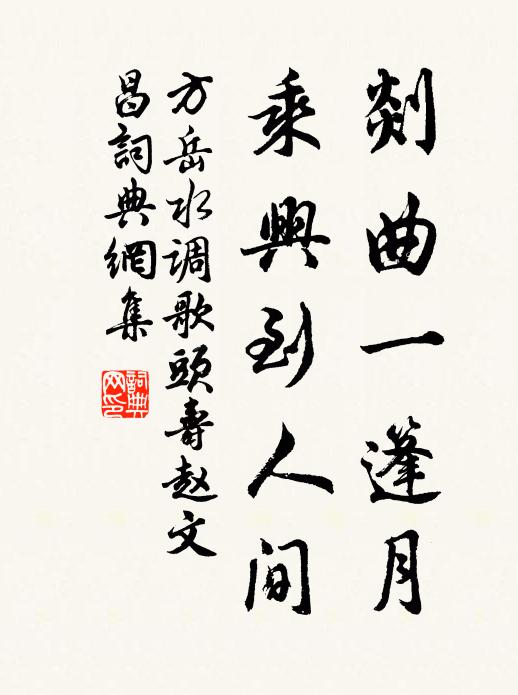 剡曲一篷月
乘興到人间
方岳水调歌頭壽赵文
昌詞典網集
詞典網印